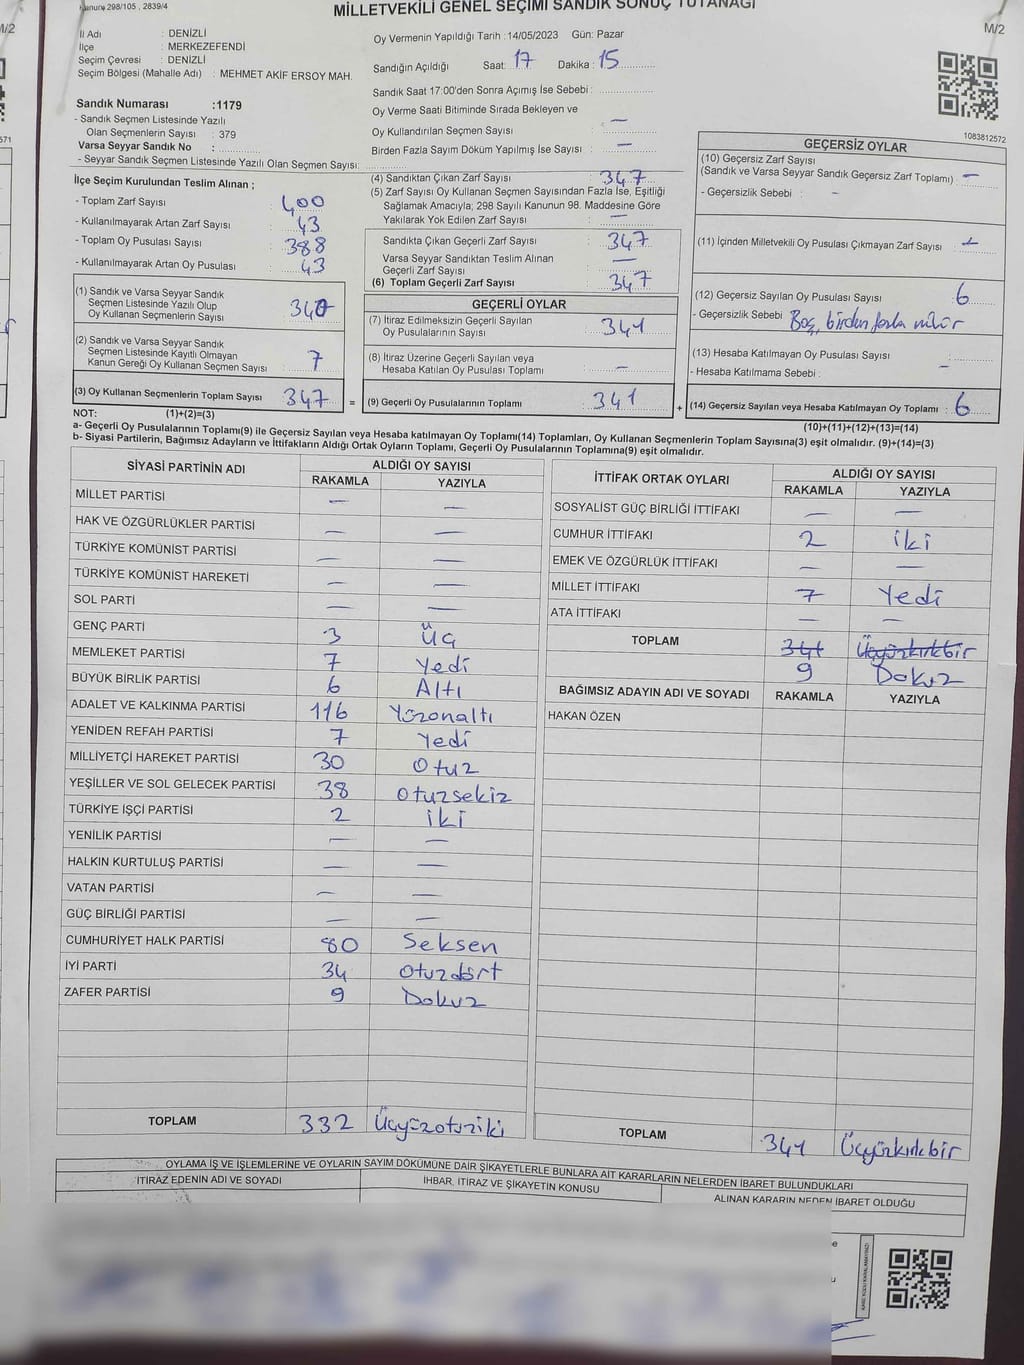 Kanun: 298/105 , 2839/4
MİLLETVEKİLİ GENEL SEÇİMİ SANDIK SONUÇ TUTANAĞI
M/2
İl Adı : DENİZLİ
İlçe : MERKEZEFENDİ
Seçim Çevresi : DENİZLİ
Seçim Bölgesi (Mahalle Adı) : MEHMET AKİF ERSOY MAH.
Sandık Numarası :1179
- Sandık Seçmen Listesinde Yazılı
Olan Seçmenlerin Sayısı : 379
Varsa Seyyar Sandık No :
- Seyyar Sandık Seçmen Listesinde Yazılı Olan Seçmen Sayısı:
Oy Vermenin Yapıldığı Tarih :14/05/2023 Gün: Pazar
Sandığın Açıldığı Saat: 17 Dakika: 15
Sandık Saat 17:00'den Sonra Açımış İse Sebebi :
Oy Verme Saati Bitiminde Sırada Bekleyen ve
Oy Kullandırılan Seçmen Sayısı : —
Birden Fazla Sayım Döküm Yapılmış İse Sayısı : —
1083812572
İlçe Seçim Kurulundan Teslim Alınan ;
- Toplam Zarf Sayısı : 400
- Kullanılmayarak Artan Zarf Sayısı : 43
- Toplam Oy Pusulası Sayısı : 388
- Kullanılmayarak Artan Oy Pusulası : 43
(1) Sandık ve Varsa Seyyar Sandık
Seçmen Listesinde Yazılı Olup
Oy Kullanan Seçmenlerin Sayısı : 340
(2) Sandık ve Varsa Seyyar Sandık
Seçmen Listesinde Kayıtlı Olmayan
Kanun Gereği Oy Kullanan Seçmen Sayısı : 7
(3) Oy Kullanan Seçmenlerin Toplam Sayısı : 347 =
(4) Sandıktan Çıkan Zarf Sayısı : 347
(5) Zarf Sayısı Oy Kullanan Seçmen Sayısından Fazla İse, Eşitliği
Sağlamak Amacıyla; 298 Sayılı Kanunun 98. Maddesine Göre
Yakılarak Yok Edilen Zarf Sayısı : —
Sandıkta Çıkan Geçerli Zarf Sayısı : 347
Varsa Seyyar Sandıktan Teslim Alınan
Geçerli Zarf Sayısı : —
(6) Toplam Geçerli Zarf Sayısı : 347
GEÇERLİ OYLAR
(7) İtiraz Edilmeksizin Geçerli Sayılan
Oy Pusulalarının Sayısı : 341
(8) İtiraz Üzerine Geçerli Sayılan veya
Hesaba Katılan Oy Pusulası Toplamı : —
(9) Geçerli Oy Pusulalarının Toplamı : 341 +
GEÇERSİZ OYLAR
(10) Geçersiz Zarf Sayısı
(Sandık ve Varsa Seyyar Sandık Geçersiz Zarf Toplamı) : —
- Geçersizlik Sebebi : -
(11) İçinden Milletvekili Oy Pusulası Çıkmayan Zarf Sayısı :
(12) Geçersiz Sayılan Oy Pusulası Sayısı : 6
- Geçersizlik Sebebi : Boş, birden fazla mühür
(13) Hesaba Katılmayan Oy Pusulası Sayısı :
- Hesaba Katılmama Sebebi : —
(14) Geçersiz Sayılan veya Hesaba Katılmayan Oy Toplamı : 6
NOT: (1)+(2)=(3) (10)+(11)+(12)+(13)=(14)
a- Geçerli Oy Pusulalarının Toplamı(9) ile Geçersiz Sayılan veya Hesaba katılmayan Oy Toplamı(14) Toplamları, Oy Kullanan Seçmenlerin Toplam Sayısına(3) eşit olmalıdır. (9)+(14)=(3)
b- Siyasi Partilerin, Bağımsız Adayların ve İttifakların Aldığı Ortak Oyların Toplamı, Geçerli Oy Pusulalarının Toplamına(9) eşit olmalıdır.
SİYASİ PARTİNİN ADI ALDIĞI OY SAYISI
RAKAMLA YAZIYLA
MİLLET PARTİSİ — —
HAK VE ÖZGÜRLÜKLER PARTİSİ — —
TÜRKİYE KOMÜNİST PARTİSİ — —
TÜRKİYE KOMÜNİST HAREKETİ — —
SOL PARTİ — —
GENÇ PARTİ 3 Üç
MEMLEKET PARTİSİ 7 Yedi
BÜYÜK BİRLİK PARTİSİ 6 Altı
ADALET VE KALKINMA PARTİSİ 116 Yüzonaltı
YENİDEN REFAH PARTİSİ 7 Yedi
MİLLİYETÇİ HAREKET PARTİSİ 30 Otuz
YEŞİLLER VE SOL GELECEK PARTİSİ 38 Otuzsekiz
TÜRKİYE İŞÇİ PARTİSİ 2 iki
YENİLİK PARTİSİ — —
HALKIN KURTULUŞ PARTİSİ — —
VATAN PARTİSİ — —
GÜÇ BİRLİĞİ PARTİSİ — —
CUMHURİYET HALK PARTİSİ 80 Seksen
İYİ PARTİ 34 Otuzdört
ZAFER PARTİSİ 9 Dokuz
TOPLAM 332 Üçyüzotuziki
İTTİFAK ORTAK OYLARI ALDIĞI OY SAYISI
RAKAMLA YAZIYLA
SOSYALİST GÜÇ BİRLİĞİ İTTİFAKI — —
CUMHUR İTTİFAKI 2 iki
EMEK VE ÖZGÜRLÜK İTTİFAKI — —
MİLLET İTTİFAKI 7 Yedi
ATA İTTİFAKI — —
TOPLAM 341 Üçyüzkırkbir
9 Dokuz
BAĞIMSIZ ADAYIN ADI VE SOYADI RAKAMLA YAZIYLA
HAKAN ÖZEN
TOPLAM 341 Üçyüzkırkbir
OYLAMA İŞ VE İŞLEMLERİNE VE OYLARIN SAYIM DÖKÜMÜNE DAİR ŞİKAYETLERLE BUNLARA AİT KARARLARIN NELERDEN İBARET BULUNDUKLARI
İTİRAZ EDENİN ADI VE SOYADI İHBAR, İTİRAZ VE ŞİKAYETİN KONUSU ALINAN KARARIN NEDEN İBARET OLDUĞU